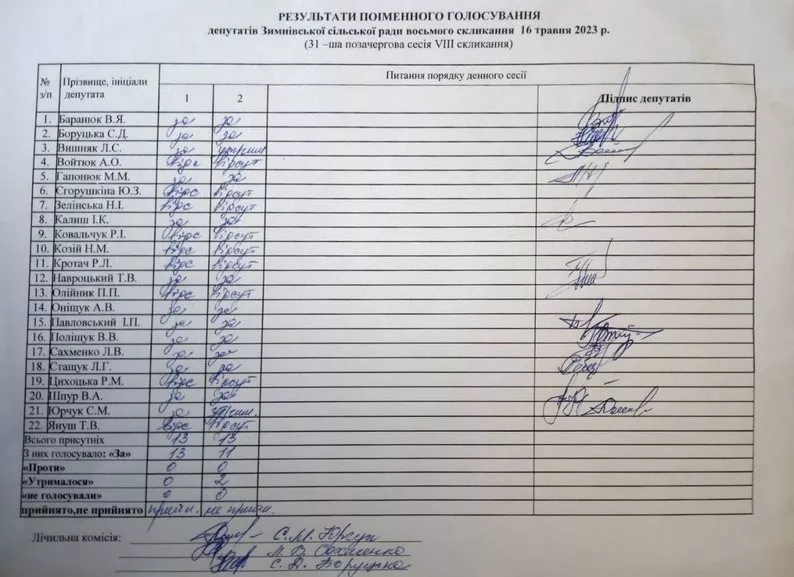 РЕЗУЛЬТАТИ ПОІМЕННОГО ГОЛОСУВАННЯ
депутатів Зимнівської сільської ради восьмого скликання 16 травня 2023 р.
(31 –ша позачергова сесія VIII скликання)
№ з/п Прізвище, ініціали депутата Питання порядку денного сесії
1 2 Підпис депутатів
1. Баранюк В.Я. за за
2. Боруцька С.Д. за за
3. Вишняк Л.С. за
4. Войтюк А.О. відс відсут
5. Гапонюк М.М. за за
6. Єгорушкіна Ю.З. відс відсут
7. Зелінська Н.І. відс відсут
8. Калиш І.К. за за
9. Ковальчук Р.І. відс відсут
10. Козій Н.М. відс відсут
11. Кротач Р.Л. відс відсут
12. Навроцький Т.В. за за
13. Олійник П.П. відс відсут
14. Оніщук А.В. за за
15. Павловський І.П. за за
16. Поліщук В.В. за за
17. Сахменко Л.В. за за
18. Стащук Л.Г. за за
19. Цихоцька Р.М. відс відсут
20. Шпур В.А. за за
21. Юрчук С.М. за
22. Януш Т.В. відс відсут
Всього присутніх 13 13
З них голосувало: «За» 13 11
«Проти» 0 0
«Утрималося» 0 2
«не голосували» 0 0
прийнято,не прийнято прийн. не прийн.
Лічильна комісія: С.М. Юрчук
Л.В. Сахменко
С.Д. Боруцька